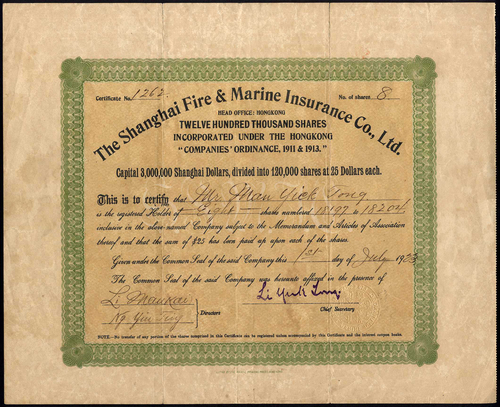 Certificate No. 1262. No. of shares 8.
The Shanghai Fire & Marine Insurance Co., Ltd.
HEAD OFFICE: HONGKONG
TWELVE HUNDRED THOUSAND SHARES
INCORPORATED UNDER THE HONGKONG
"COMPANIES' ORDINANCE, 1911 & 1913."
Capital 3,000,000 Shanghai Dollars, divided into 120,000 shares at 25 Dollars each.
This is to certify that Mr. Man Yick Tong
is the registered Holder of Eight shares numbered 18197 to 18204
inclusive in the above-named Company subject to the Memorandum and Articles of Association
thereof and that the sum of $25 has been paid up upon each of the shares.
Given under the Common Seal of the said Company this 1st day of July 1923
The Common Seal of the said Company was hereunto affixed in the presence of
Li
Ng Yiu Ting
Directors
Li Yuk Tong
Chief Secretary
NOTE.—No transfer of any portion of the shares comprised in this Certificate can be registered unless surrendered by this Certificate and the interest coupon books